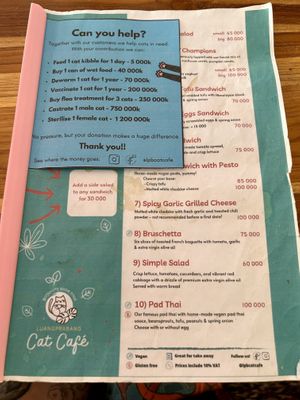 Can you help?
Together with our customers we help cats in need.
With your contribution we can:
• Feed 1 cat kibble for 1 day - 5 000k
• Buy 1 can of wet food - 40 000k
• Deworm 1 cat for 1 year - 70 000k
• Vaccinate 1 cat for 1 year - 200 000k
• Buy flea treatment for 3 cats - 250 000k
• Castrate 1 male cat - 750 000k
• Sterilise 1 female cat - 1 200 000k
No pressure, but your donation makes a huge difference
Thank you!!
See where the money goes:
@lpbcatcafe
Add a side salad
to any sandwich
for 30 000
LUANGPRABANG
Cat Café
small 45 000
big 80 000
Champions
small 60 000
big 100 000
Sandwich
70 000
Sandwich
75 000
Sandwich
70 000
Sandwich with Pesto
Three-made vegan pesto, yummy!
Choose your base:
- Crispy tofu
- Melted white cheddar cheese
85 000
100 000
7) Spicy Garlic Grilled Cheese
Melted white cheddar with fresh garlic and heeded chili
powder - not recommended before a first date!
100 000
8) Bruschetta
75 000
Six slices of toasted french baguette with tomato, garlic
& extra virgin olive oil
9) Simple Salad
60 000
Crisp lettuce, tomatoes, cucumbers, and vibrant red
cabbage with a drizzle of premium extra virgin olive oil.
Served with warm bread
10) Pad Thai
100 000
Our famous pad thai with home-made vegan oyster
sauce, beansprouts, tofu, peanuts & spring onion
Choose with or without egg
Vegan
Great for take away
Follow us!
Gluten free
Prices include 10% VAT
@lpbcatcafe